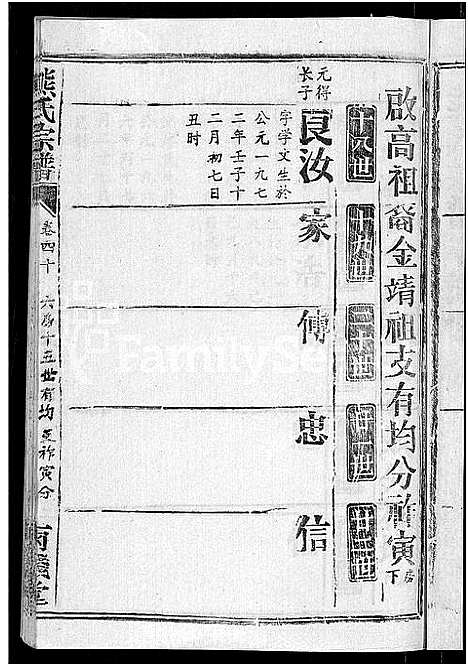 啟高祖裔金靖祖支有均分祚寅下房
十八世
十九世
二十世
元得
长子
良汝
字学文生於
公元一九七
二年壬子十
二月初七日
丑时
家
傳
忠
信
熊氏宗譜
卷四十
六房十五世有均
祚寅分
FamilySe